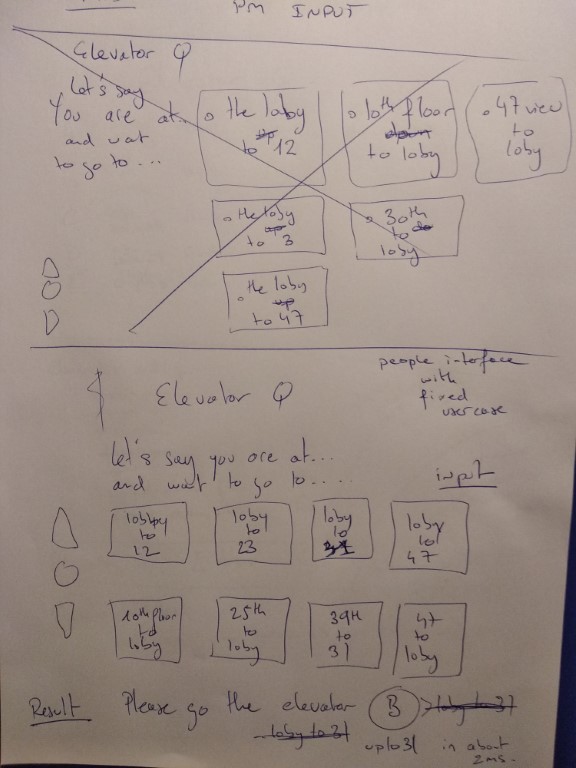 PM INPUT
Elevator Q
Let's say
You are at..
and wat
to go to ...
the loby
to 12
10th floor
to loby
47 view
to
loby
the loby
to 3
30th
to
loby
the loby
up
to 47
people interface
with
fixed
usercase
Elevator Q
let's say you are at...
and wat to go to.....
input
lobby
to
12
loby
to
23
loby
to
31
loby
to
47
10th floor
to
loby
25th
to
loby
39th
to
31
47
to
loby
Result Please go the elevator B loby to 31
loby to 31
up to 31 in about
2ms.